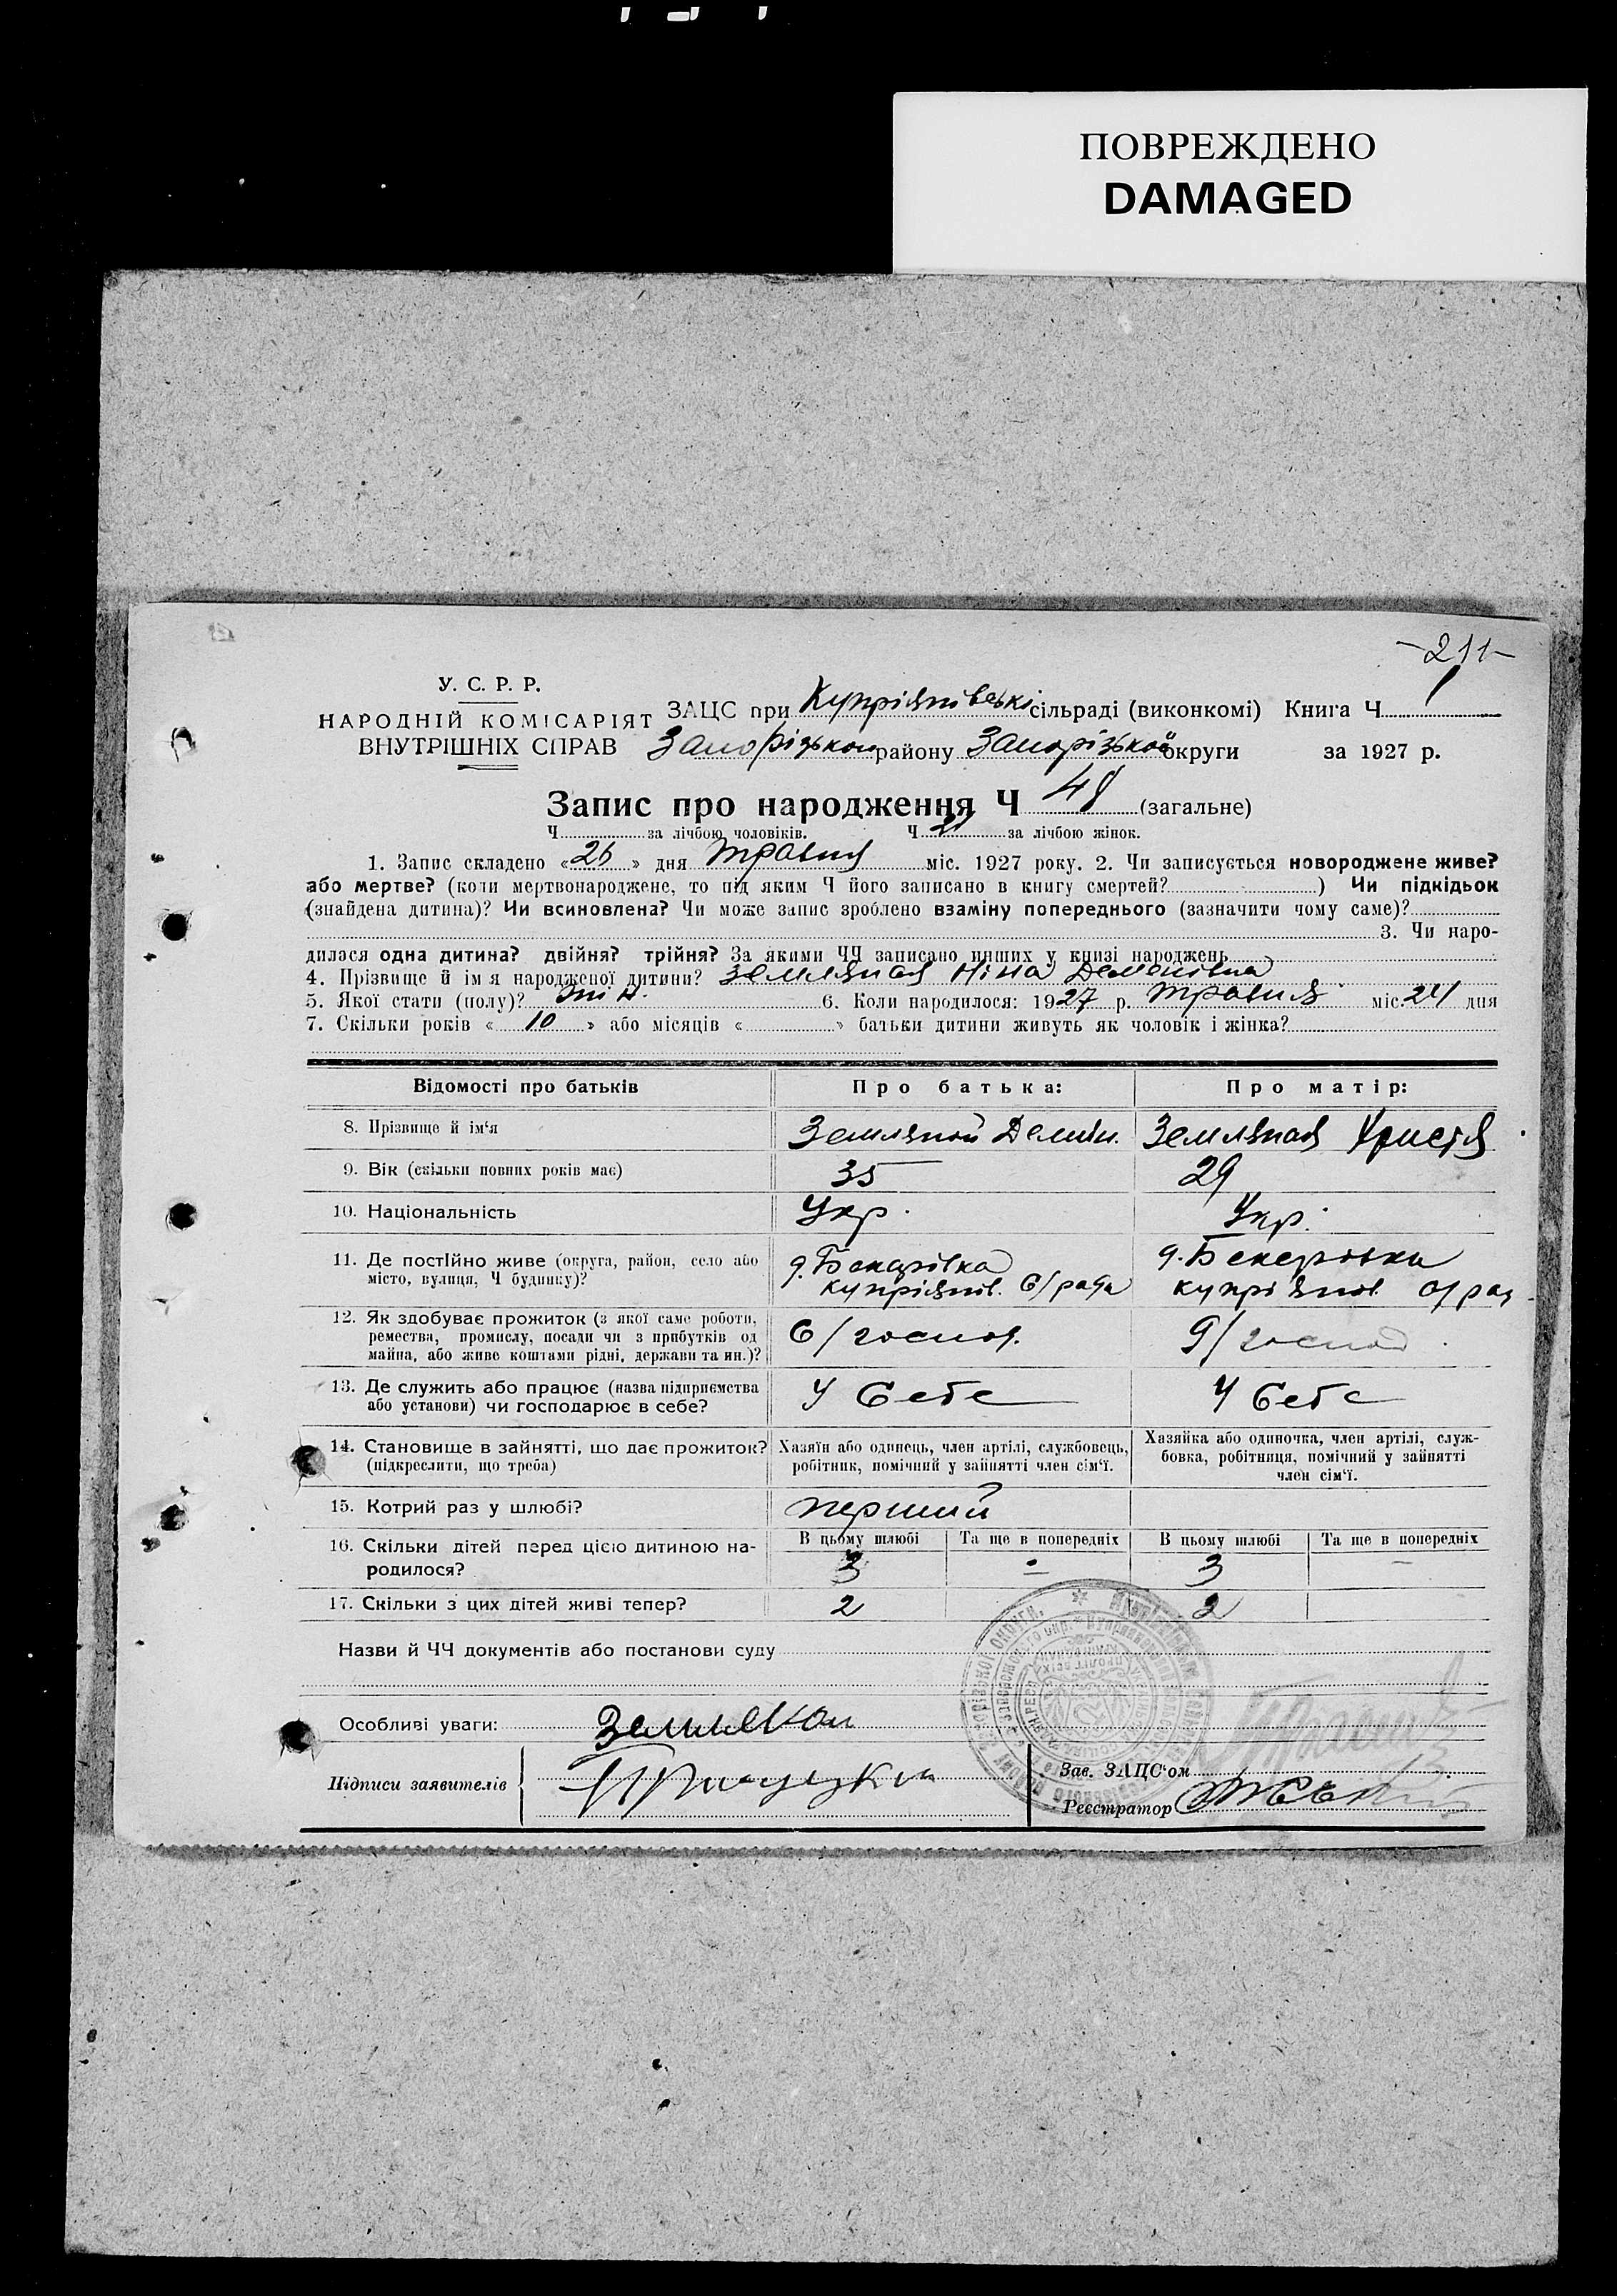 ПОВРЕЖДЕНО
DAMAGED
-211-
У. С. Р. Р.
НАРОДНІЙ КОМІСАРІЯТ
ВНУТРІШНІХ СПРАВ
ЗАЦС при Купріянівські сільраді (виконкомі) Книга Ч 1
Запорізького району Запорізької округи за 1927 р.
Запис про народження Ч 48 (загальне)
Ч за лічбою чоловіків. Ч 21 за лічбою жінок.
1. Запис складено «26» дня травня міс. 1927 року. 2. Чи записується новороджене живе?
або мертве? (коли мертвонароджене, то під яким Ч його записано в книгу смертей? ) Чи підкідьок
(знайдена дитина)? Чи всиновлена? Чи може запис зроблено взаміну попереднього (зазначити чому саме)?
3. Чи наро-
дилася одна дитина? двійня? трійня? За якими ЧЧ записано инших у книзі народжень
4. Прізвище й ім я народженої дитини? Земляная Ніна Деменівна
5. Якої стати (полу)? жін. 6. Коли народилося: 1927 р. травня міс. 24 дня
7. Скільки років «10» або місяців « » батьки дитини живуть як чоловік і жінка?
Відомості про батьків
Про батька:
Про матір:
8. Прізвище й ім‘я
Земляной Демин.
Земляная Христя
9. Вік (скільки повних років має)
35
29
10. Національність
Укр.
Укр.
11. Де постійно живе (округа, район, село або
місто, вулиця, Ч будинку)?
д. Бекарівка
купріянів. С/рада
д. Бекаровка
купріянов. с/рад
12. Як здобуває прожиток (з якої саме роботи,
ремества, промислу, посади чи з прибутків од
майна, або живе коштами рідні, держави та ин.)?
С/господ.
С/господ.
13. Де служить або працює (назва підприємства
або установи) чи господарює в себе?
У Себе
У Себе
14. Становище в зайнятті, що дає прожиток?
(підкреслити, що треба)
Хазяїн або одинець, член артілі, службовець,
робітник, помічний у зайнятті член сім‘ї.
Хазяйка або одиночка, член артілі, служ-
бовка, робітниця, помічний у зайнятті
член сім‘ї.
15. Котрий раз у шлюбі?
перший
16. Скільки дітей перед цією дитиною на-
родилося?
В цьому шлюбі
Та ще в попередніх
В цьому шлюбі
Та ще в попередніх
3
-
3
-
17. Скільки з цих дітей живі тепер?
2
2
Назви й ЧЧ документів або постанови суду
Особливі уваги:
Підписи заявителів
Зав. ЗАЦС‘ом
Реєстратор